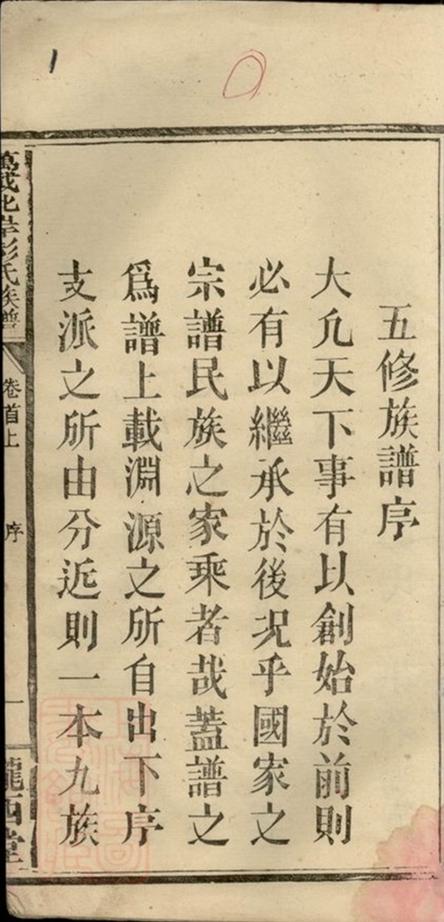 五修族譜序
大凣天下事有以創始於前則
必有以繼承於後况乎國家之
宗譜民族之家乘者哉蓋譜之
爲譜上載淵源之所自出下序
支派之所由分近則一本九族
彭氏族譜
卷首上
序
一
隴西堂
1